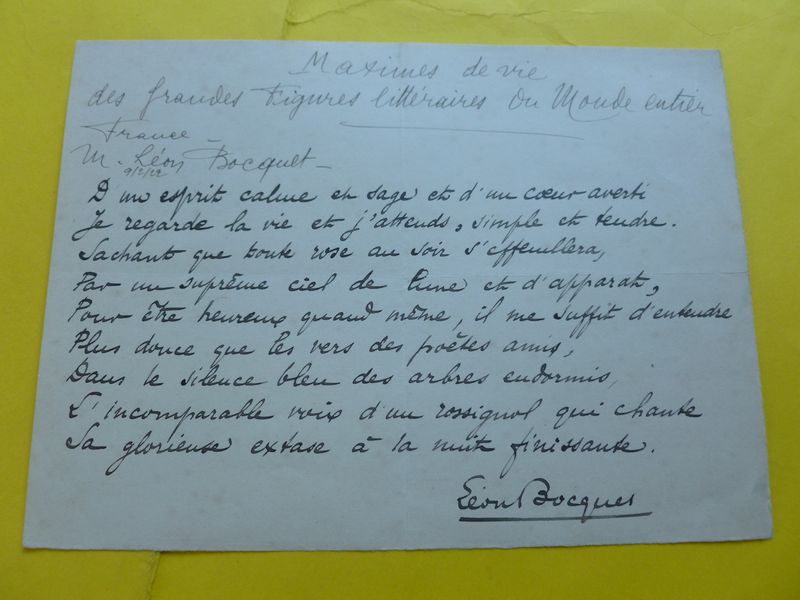 Maximes de vie
des Grandes Figures littéraires Du Monde entier
France
M. Léon Bocquet
D'un esprit calme et sage et d'un cœur averti
Je regarde la vie et j'attends, simple et tendre.
Sachant que toute rose au soir s'effeuillera,
Par un suprême ciel de lune et d'apparat,
Pour être heureux quand même, il me suffit d'entendre
Plus douce que les vers des poètes amis,
Dans le silence bleu des arbres endormis,
L'incomparable voix d'un rossignol qui chante
Sa glorieuse extase à la nuit finissante.
Léon Bocquet